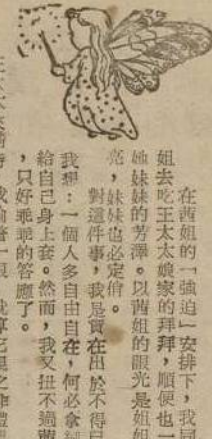 在茜姐的「強迫」安排下，我同
姐去吃王太太娘家的拜拜，順便也一
她妹妹的芳澤。以茜姐的眼光是姐姐
亮，妹妹也必定俏。
對這件事，我是實在出於不得已
我想：一個人多自由自在，何必拿
給自己身上套。然而，我又扭不過茜
，只好乖乖的答應了。